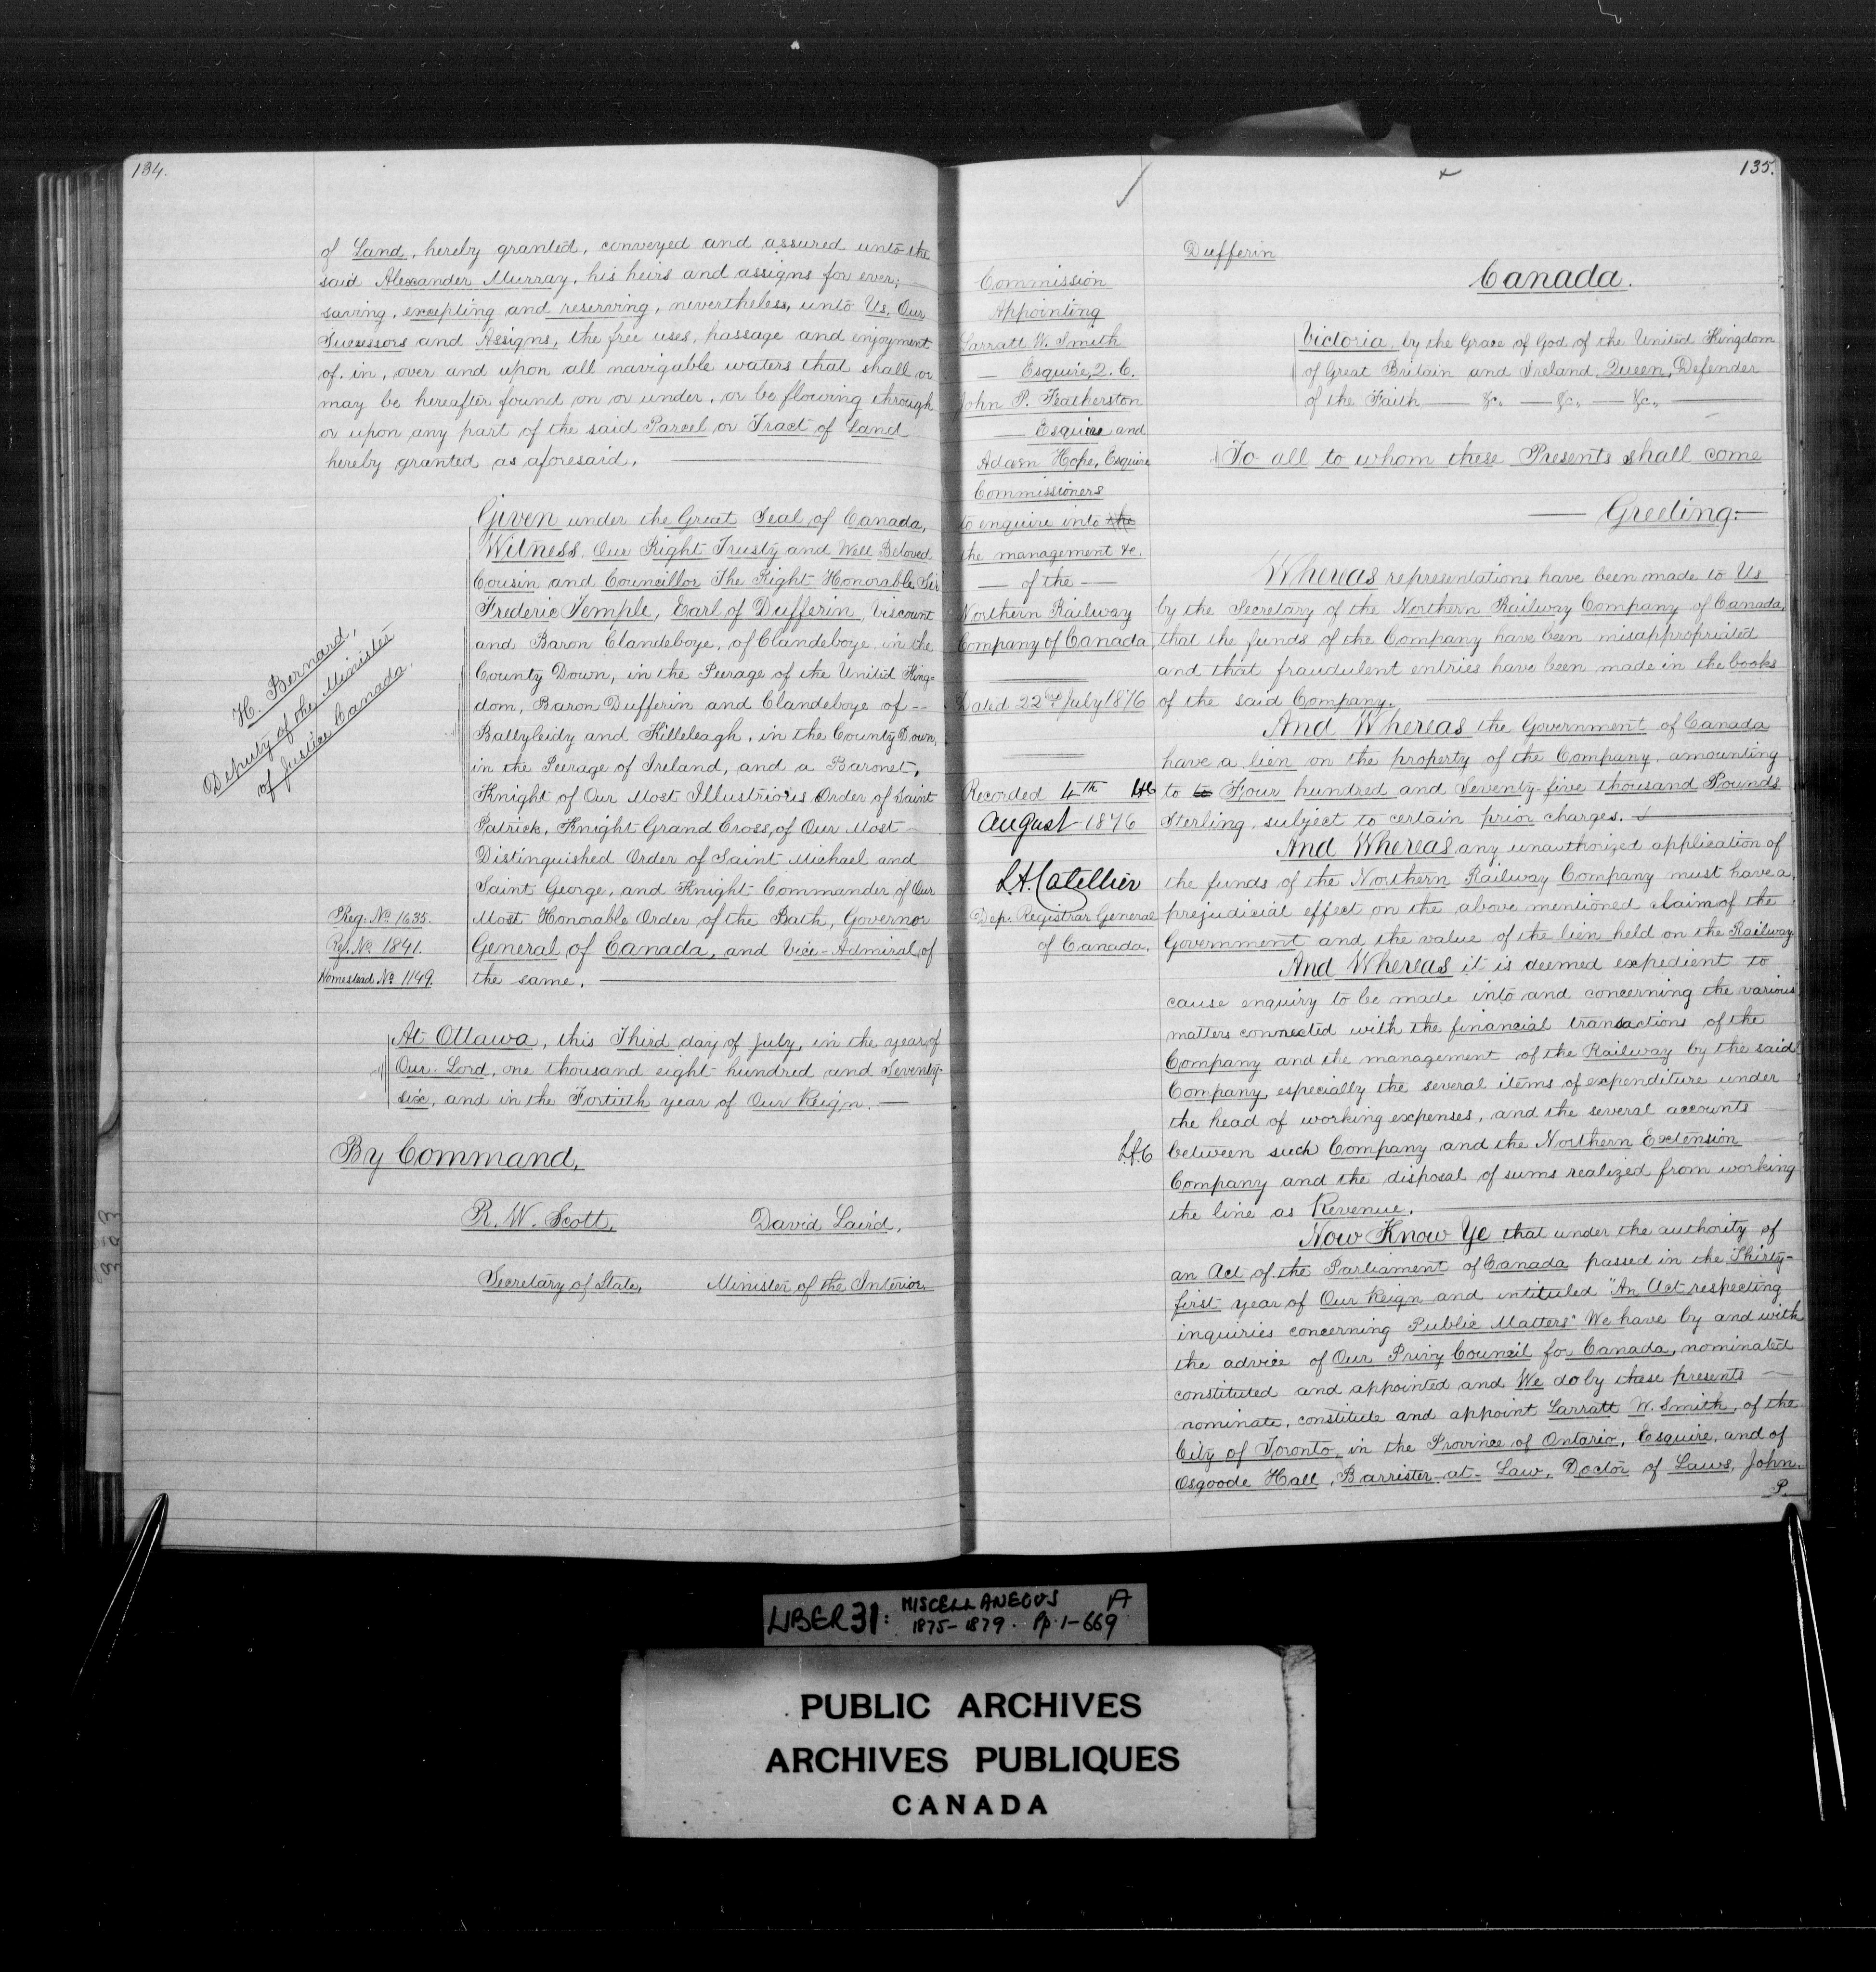 134.
of Land, hereby granted, conveyed and assured unto the
said Alexander Murray, his heirs and assigns for ever;
saving, excepting and reserving, nevertheless, unto Us, Our
Successors and Assigns, the free uses, passage and enjoyment
of, in, over and upon all navigable waters that shall or
may be hereafter found on or under, or be flowing through
or upon any part of the said Parcel or Tract of Land
hereby granted as aforesaid.
Given under the Great Seal of Canada,
Witness, Our Right Trusty and Well Beloved
Cousin and Councillor The Right Honorable Sir
Frederic Temple, Earl of Dufferin, Viscount
and Baron Clandeboye, of Clandeboye in the
County Down, in the Peerage of the United King-
dom, Baron Dufferin and Clandeboye of --
Ballyleidy and Killeleagh, in the County Down,
in the Peerage of Ireland, and a Baronet,
Knight of Our Most Illustrious Order of Saint
Patrick, Knight Grand Cross, of Our Most
Distinguished Order of Saint Michael and
Saint George, and Knight Commander of Our
Most Honorable Order of the Bath, Governor
General of Canada, and Vice-Admiral of
the same.
H. Bernard,
Deputy of the Minister
of Justice Canada.
Reg. No 1635.
Ref. No 1841.
Homestead No 1149.
At Ottawa, this Third day of July, in the year of
Our Lord, one thousand eight hundred and Seventy-
six, and in the Fortieth year of Our Reign. —
By Command,
R. W. Scott,   David Laird,
Secretary of State,   Minister of the Interior.
135.
Commission
Appointing
Larratt W. Smith
— Esquire, Q. C.
John P. Featherston
— Esquire and
Adam Hope, Esquire
Commissioners
to enquire into the
the management &c.
— of the —
Northern Railway
Company of Canada
Dated 22nd July 1876
Recorded 4th
August 1876
L.A. Catellier
Dep. Registrar General
of Canada.
L.A.C
Dufferin
Canada.
Victoria, by the Grace of God, of the United Kingdom
of Great Britain and Ireland, Queen, Defender
of the Faith — &c. — &c. — &c. —
To all to whom these Presents shall come
— Greeting: —
Whereas representations have been made to Us
by the Secretary of the Northern Railway Company of Canada,
that the funds of the Company have been misappropriated
and that fraudulent entries have been made in the books
of the said Company.
And Whereas the Government of Canada
have a lien on the property of the Company, amounting
to to Four hundred and Seventy-five thousand Pounds
Sterling, subject to certain prior charges.
And Whereas any unauthorized application of
the funds of the Northern Railway Company must have a
prejudicial effect on the above mentioned claim of the
Government and the value of the lien held on the Railway
And Whereas it is deemed expedient to
cause enquiry to be made into and concerning the various
matters connected with the financial transactions of the
Company and the management of the Railway by the said
Company, especially the several items of expenditure under
the head of working expenses, and the several accounts
between such Company and the Northern Extension
Company and the disposal of sums realized from working
the line as Revenue.
Now Know Ye that under the authority of
an Act of the Parliament of Canada passed in the Thirty-
first year of Our Reign and intituled "An Act respecting
inquiries concerning Public Matters" We have by and with
the advice of Our Privy Council for Canada, nominated
constituted and appointed and We do by these presents —
nominate, constitute and appoint Larratt W. Smith, of the
City of Toronto, in the Province of Ontario, Esquire, and of
Osgoode Hall, Barrister-at-Law, Doctor of Laws, John
P.
LIBER 31: MISCELLANEOUS A
1875-1879. Pp. 1-669
PUBLIC ARCHIVES
ARCHIVES PUBLIQUES
CANADA